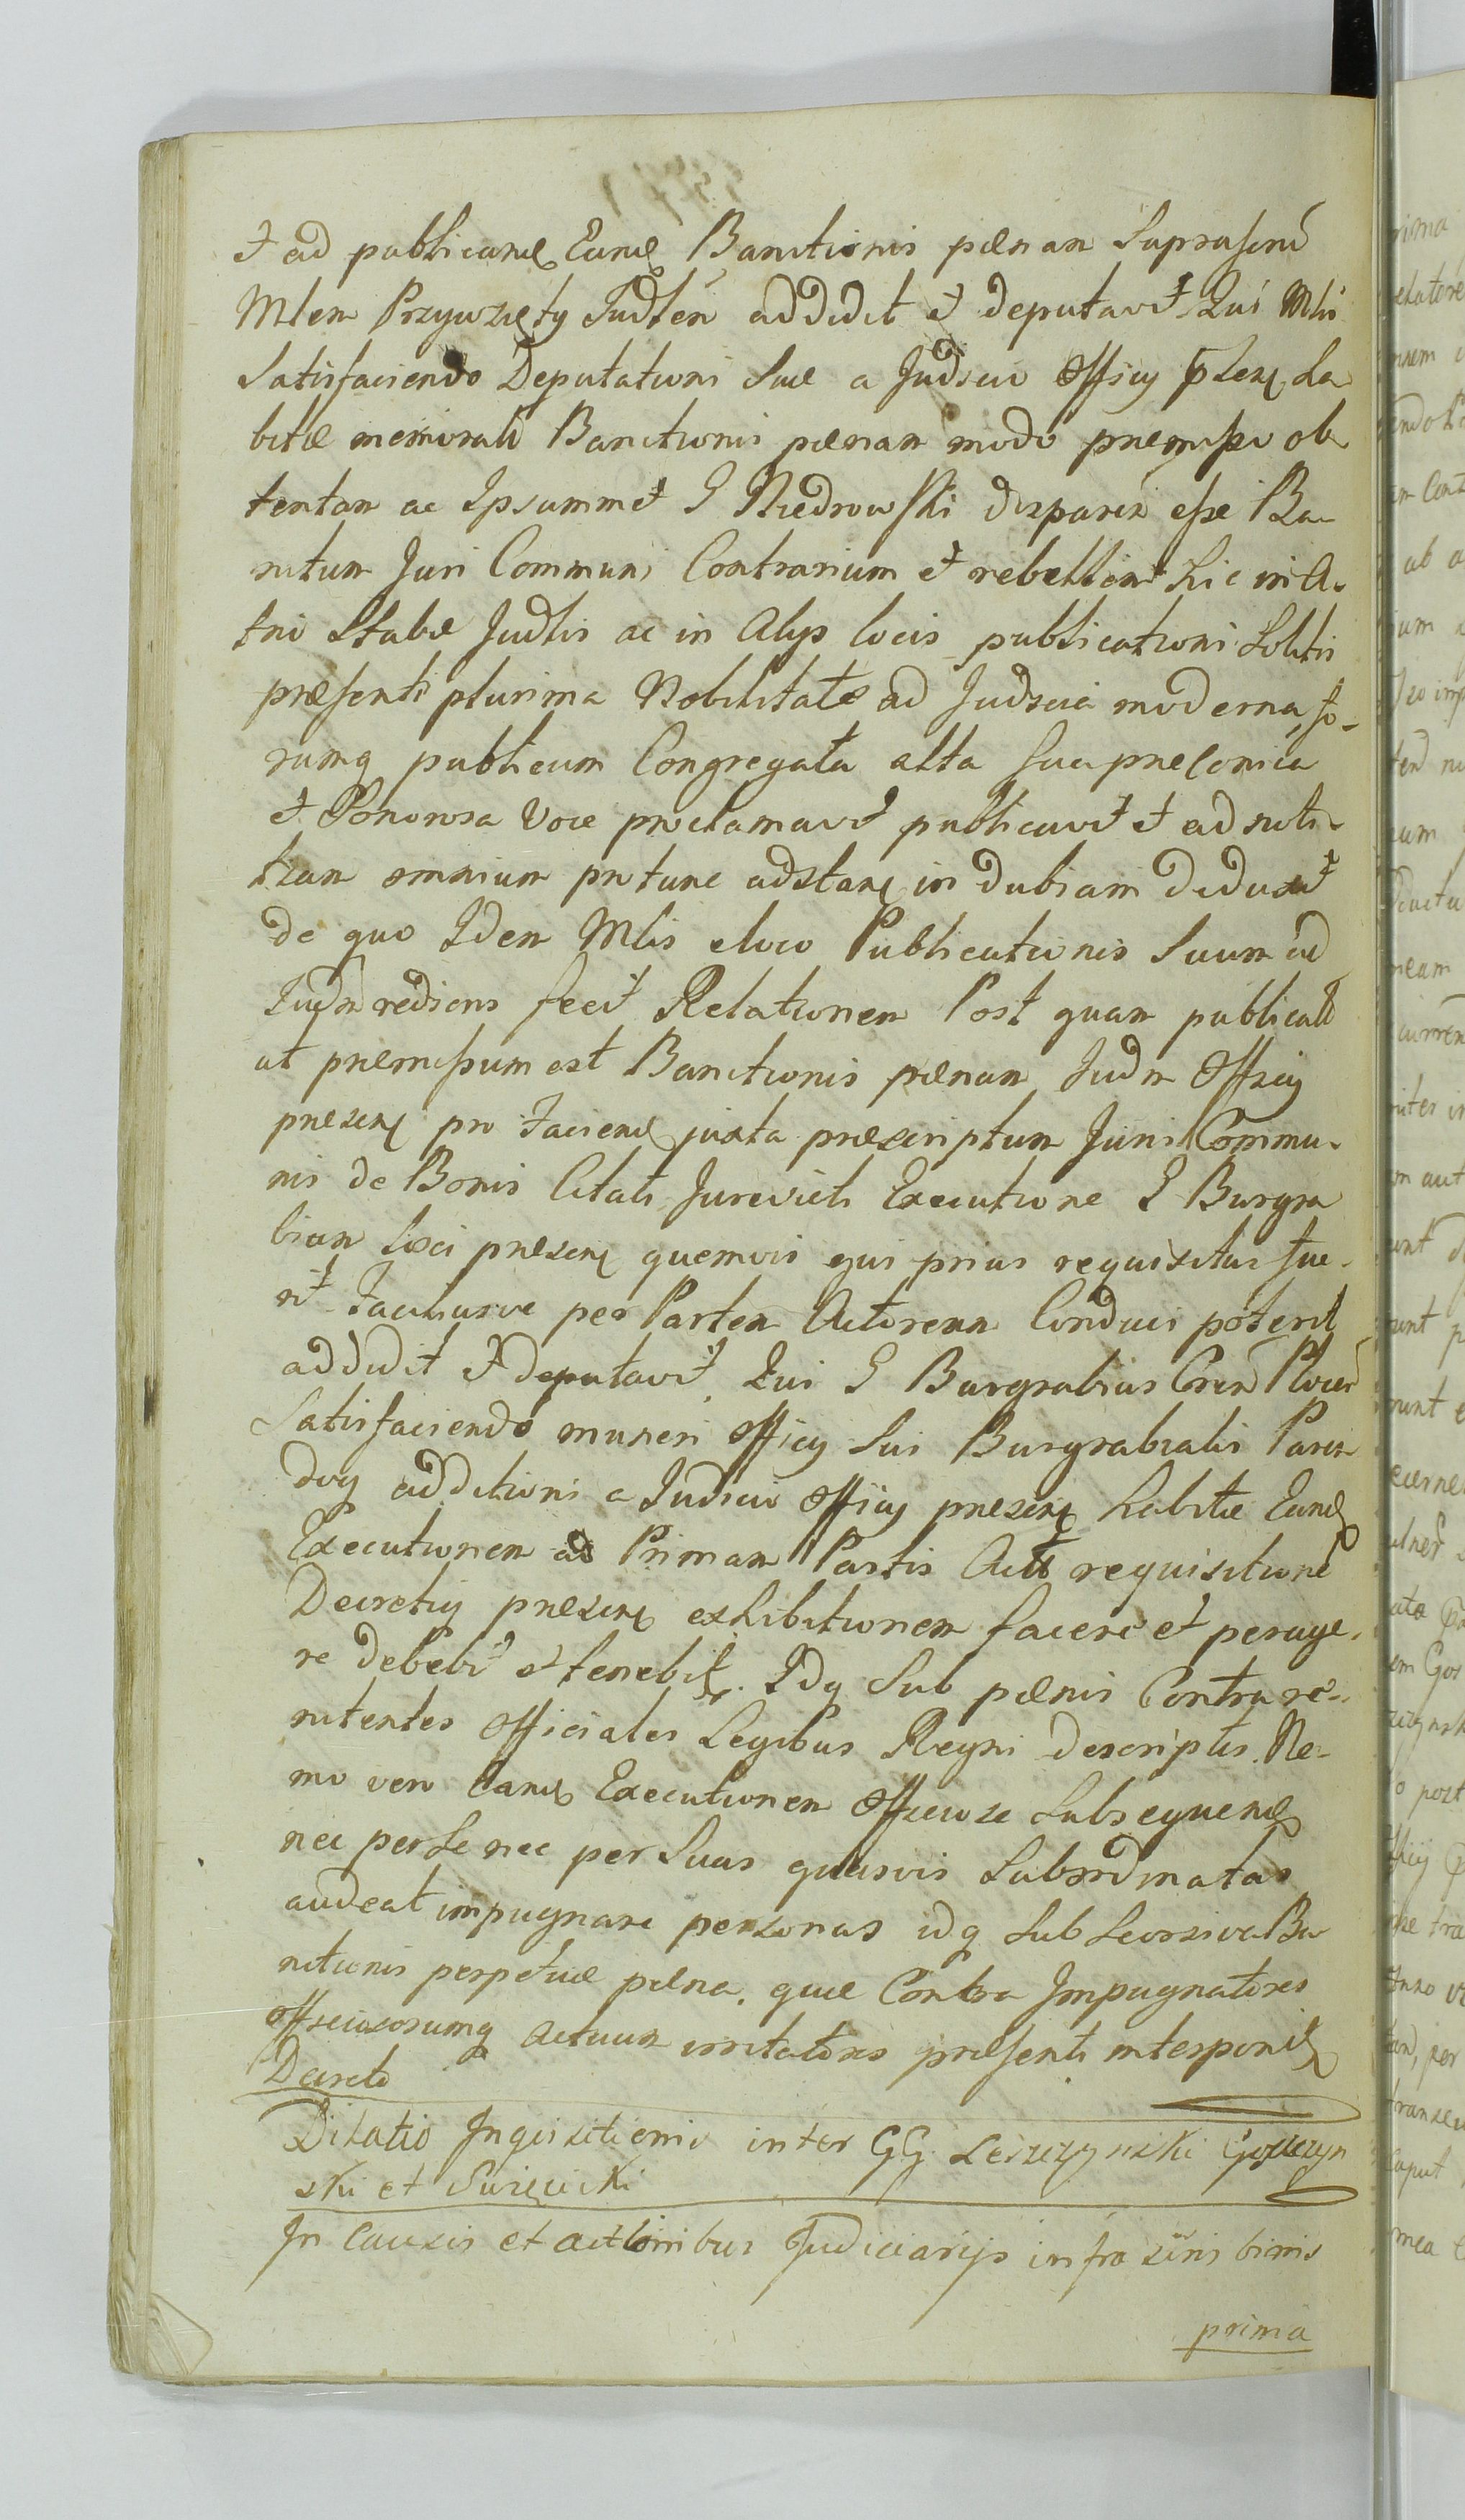 et ad publicand Eand Banitionis pœnam Suprascrit
Mlem Przywzięty Judlem addidit et deputavit Qui Mlis
Satisfaciendo Deputationi Suæ a Judicio Officij præsen ha
bitæ memorati Banitionis pœnam modo præmisso ob
tentam ac Ipsummet G Niedrowski disparem esse Ba
nitum Juri Communi Contrarium et rebellem hic in A-
trio Stubæ Judlis ac in Alijs locis publicationi Solitis
præsenti plurima Nobilitate ad Judicia moderna, fo-
rumq publicum Congregata alta Sua præconica
et Sonorosa Voce proclamavit publicavit et ad noti-
tiam omnium pro tunc adstan in dubiam deduxit
de quo Idem Mlis eloco Publicationis Suum ad
Judm rediens fecit Relationem Post quam publicatt
ut præmissum est Banitionis pœnam Judm Officij
præsen pro faciend juxta præscriptum Juris Commu-
nis de Bonis Citati Jurevicti Executione G Burgra
bium Loci præsen quemvis qui prius requisitus fue-
rit faciliusve per Partem Actoream Conduci poterit
addidit et deputavit, Qui G Burgrabius Cren Plocen
Satisfaciendo muneri Officij Sui Burgrabialis Paren
doq additioni a Judicio Officij præsen habitæ Eand
Executionem ad Primam Partis Act requisitione
Decretiq præsen exhibitionem facere et perage-
re debebit et tenebit. Idq Sub pœnis Contra re-
nitentes Officiales Legibus Regni descriptis. Ne-
mo vero Eand Executionem Officiose Subsequend
nec perse nec per Suas quasvis Subordinatas
audeat impugnare personas idq Sub Seorsiva Ba
nitionis perpetuæ pœna. quæ Contra Impugnatores
Officiosorumq Actuum irritatores præsenti interponit
Decreto
Dilatio Inquisitionis inter GG. Leszczynski Goszczyn
ski et Swięcicki
In Causis et actionibus Judiciarijs infra scris binis
prima